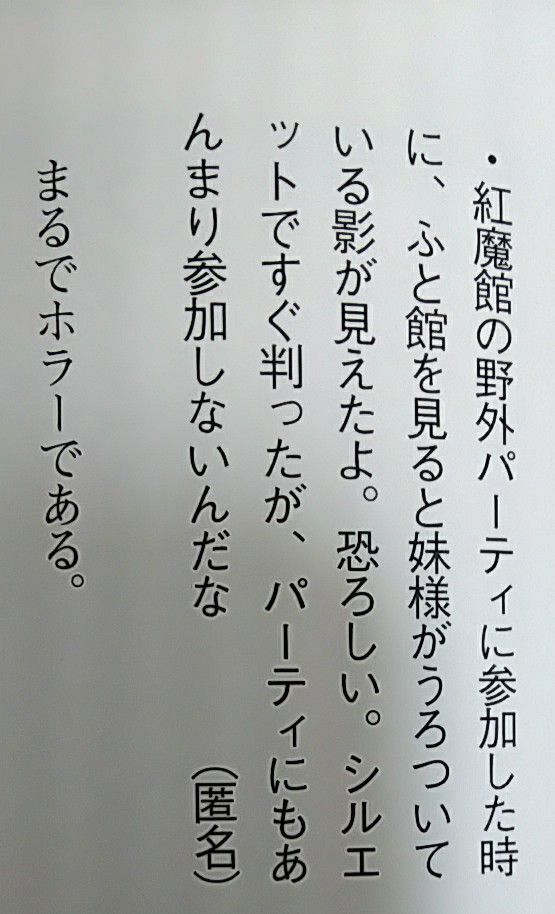 ・紅魔館の野外パーティに参加した時
に、ふと館を見ると妹様がうろついて
いる影が見えたよ。恐ろしい。シルエ
ットですぐ判ったが、パーティにもあ
んまり参加しないんだな　（匿名）
まるでホラーである。